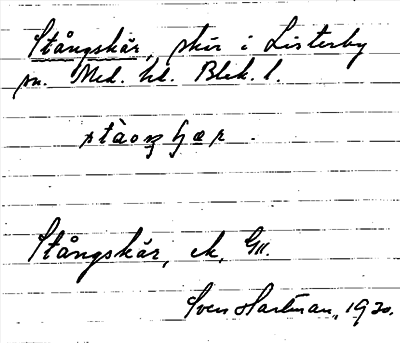 Stångskär, skär i Listerby
sn. Med. hd. Blek. l.
Stångskär, ek. GM.
Sven Hartman, 1930.